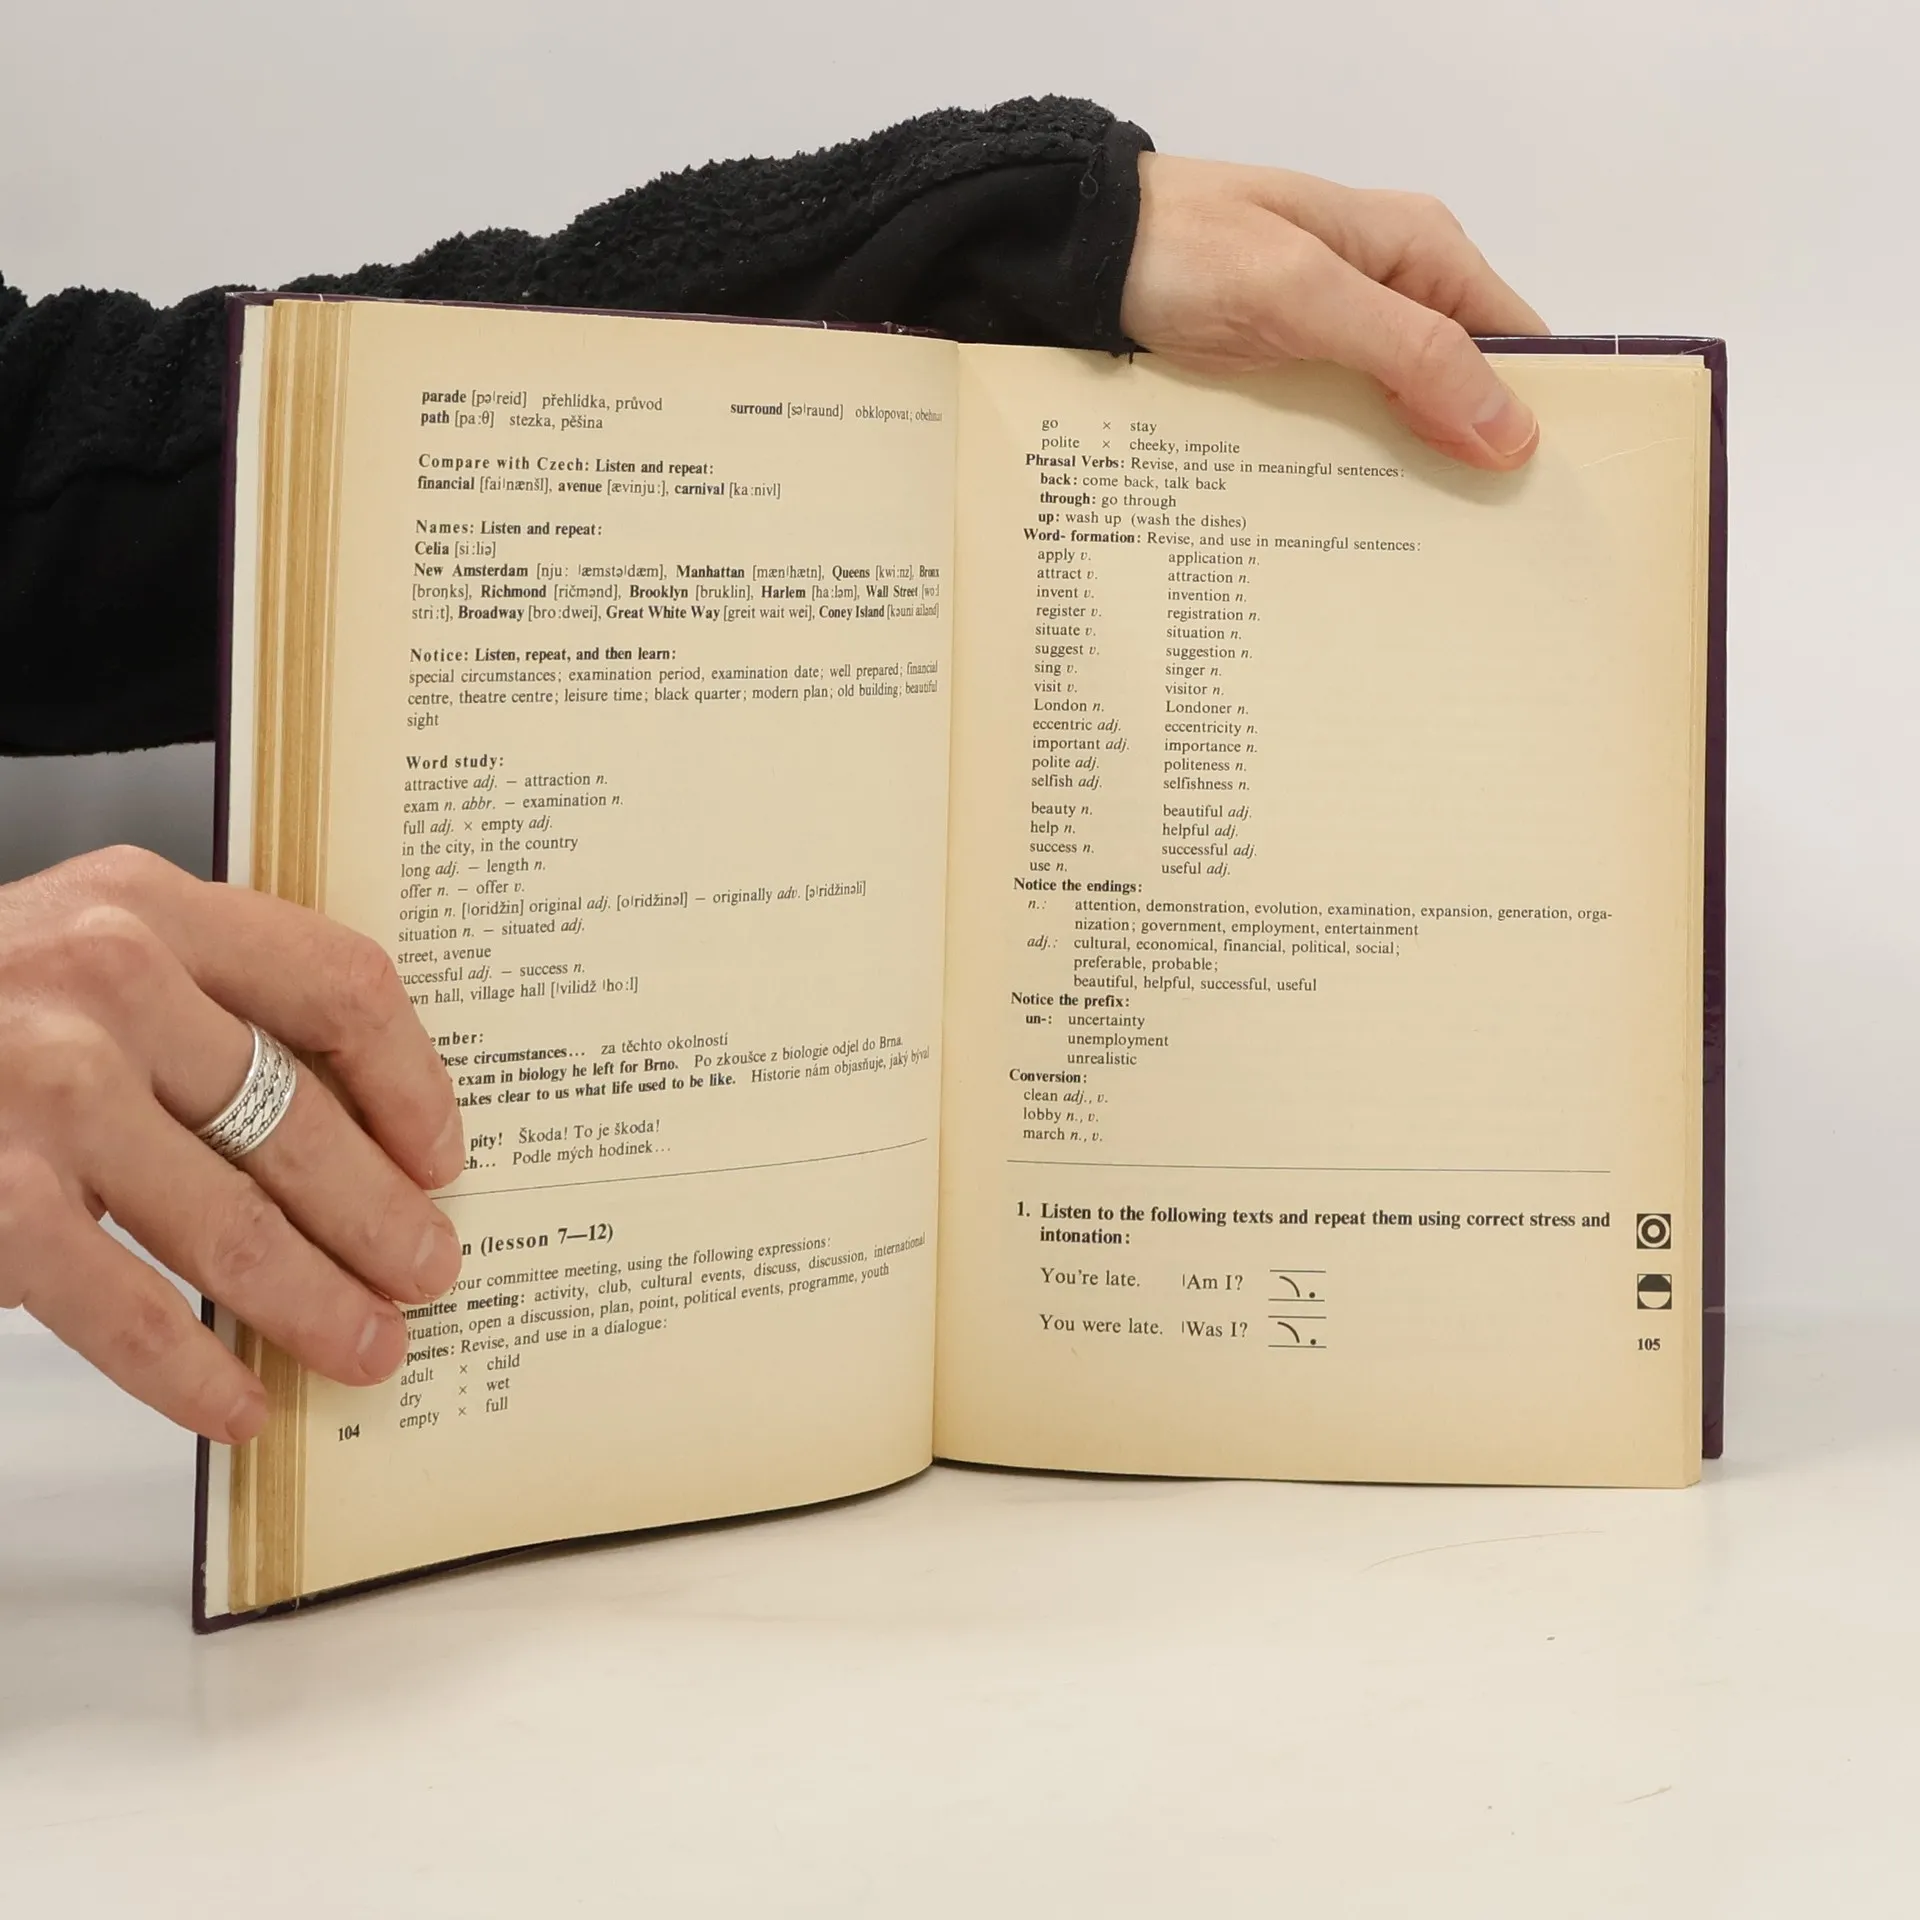 parade [pəˈreid] přehlídka, průvod
path [pa:θ] stezka, pěšina
surround [səˈraund] obklopovat; obehnat
Compare with Czech: Listen and repeat:
financial [faiˈnænšl], avenue [ævinju:], carnival [ka:nivl]
Names: Listen and repeat:
Celia [si:liə]
New Amsterdam [nju: ˈæmstəˈdæm], Manhattan [mænˈhætn], Queens [kwi:nz], Bronx
[broŋks], Richmond [ričmənd], Brooklyn [bruklin], Harlem [ha:ləm], Wall Street [wo:l
stri:t], Broadway [bro:dwei], Great White Way [greit wait wei], Coney Island [kəuni ailənd]
Notice: Listen, repeat, and then learn:
special circumstances; examination period, examination date; well prepared; financial
centre, theatre centre; leisure time; black quarter; modern plan; old building; beautiful
sight
Word study:
attractive adj. — attraction n.
exam n. abbr. — examination n.
full adj. × empty adj.
in the city, in the country
long adj. — length n.
offer n. — offer v.
origin n. [ˈoridžin] original adj. [oˈridžinəl] — originally adv. [əˈridžinəli]
situation n. — situated adj.
street, avenue
uccessful adj. — success n.
wn hall, village hall [ˈvilidž ˈho:l]
mber:
hese circumstances... za těchto okolností
exam in biology he left for Brno. Po zkoušce z biologie odjel do Brna.
akes clear to us what life used to be like. Historie nám objasňuje, jaký býval
pity! Škoda! To je škoda!
ch... Podle mých hodinek...
n (lesson 7—12)
your committee meeting, using the following expressions:
mmittee meeting: activity, club, cultural events, discuss, discussion, international
ituation, open a discussion, plan, point, political events, programme, youth
posites: Revise, and use in a dialogue:
adult × child
dry × wet
empty × full
104
go × stay
polite × cheeky, impolite
Phrasal Verbs: Revise, and use in meaningful sentences:
back: come back, talk back
through: go through
up: wash up (wash the dishes)
Word- formation: Revise, and use in meaningful sentences:
apply v. application n.
attract v. attraction n.
invent v. invention n.
register v. registration n.
situate v. situation n.
suggest v. suggestion n.
sing v. singer n.
visit v. visitor n.
London n. Londoner n.
eccentric adj. eccentricity n.
important adj. importance n.
polite adj. politeness n.
selfish adj. selfishness n.
beauty n. beautiful adj.
help n. helpful adj.
success n. successful adj.
use n. useful adj.
Notice the endings:
n.: attention, demonstration, evolution, examination, expansion, generation, orga-
nization; government, employment, entertainment
adj.: cultural, economical, financial, political, social;
preferable, probable;
beautiful, helpful, successful, useful
Notice the prefix:
un-: uncertainty
unemployment
unrealistic
Conversion:
clean adj., v.
lobby n., v.
march n., v.
1. Listen to the following texts and repeat them using correct stress and
intonation:
You're late. ˈAm I?
You were late. ˈWas I?
105